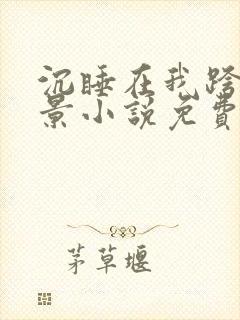 沉睡在我跨
景小说免費
茅草堰